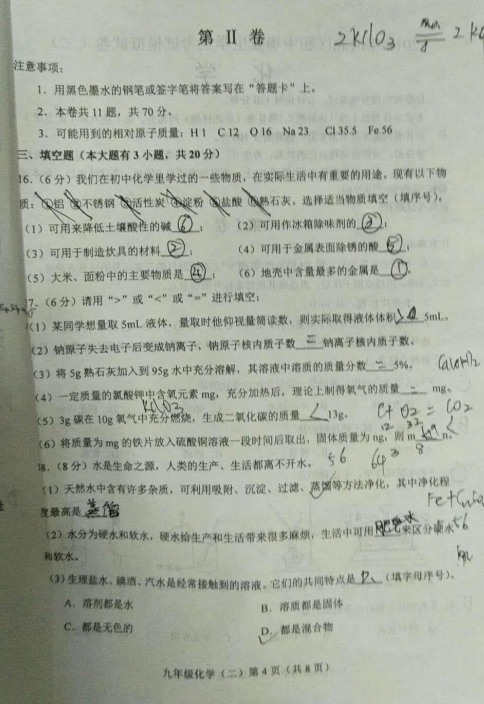 第 Ⅱ 卷
2KClO₃
注意事项：
1．用黑色墨水的钢笔或签字笔将答案写在“答题卡”上。
2．本卷共 11 题，共 70 分。
3．可能用到的相对原子质量：H 1 C 12 O 16 Na 23 Cl 35.5 Fe 56
三、填空题（本大题有 3 小题，共 20 分）
16．（6 分）我们在初中化学里学过的一些物质，在实际生活中有重要的用途。现有以下物
质：①铝 ②不锈钢 ③活性炭 ④淀粉 ⑤盐酸 ⑥熟石灰。选择适当物质填空（填序号）。
（1）可用来降低土壤酸性的碱 ⑥ ； （2）可用作冰箱除味剂的 ③ ；
（3）可用于制造炊具的材料 ② ； （4）可用于金属表面除锈的酸 ⑤ ；
（5）大米、面粉中的主要物质是 ④ ； （6）地壳中含量最多的金属是 ① 。
17．（6 分）请用“>”或“<”或“=”进行填空：
（1）某同学想量取 5mL 液体，量取时他仰视量筒读数，则实际取得液体体积 > 5mL。
（2）钠原子失去电子后变成钠离子，钠原子核内质子数 = 钠离子核内质子数。
（3）将 5g 熟石灰加入到 95g 水中充分溶解，其溶液中溶质的质量分数 = 5%。
Ca(OH)₂
（4）一定质量的氯酸钾中含氧元素 mg，充分加热后，理论上制得氧气的质量 = mg。
KClO₃
（5）3g 碳在 10g 氧气中充分燃烧，生成二氧化碳的质量 < 13g。
C + O₂ = CO₂
12 32
3 8
（6）将质量为 mg 的铁片放入硫酸铜溶液一段时间后取出，固体质量为 ng，则 m < n。
56 64
18．（8 分）水是生命之源，人类的生产、生活都离不开水。
（1）天然水中含有许多杂质，可利用吸附、沉淀、过滤、蒸馏等方法净化，其中净化程
度最高是 蒸馏
（2）水分为硬水和软水，硬水给生产和生活带来很多麻烦，生活中可用 肥皂水 来区分硬水
56
和软水。
（3）生理盐水、碘酒、汽水是经常接触到的溶液。它们的共同特点是 D （填字母序号）。
A．溶剂都是水 B．溶质都是固体
C．都是无色的 D．都是混合物
九年级化学（二）第 4 页（共 8 页）